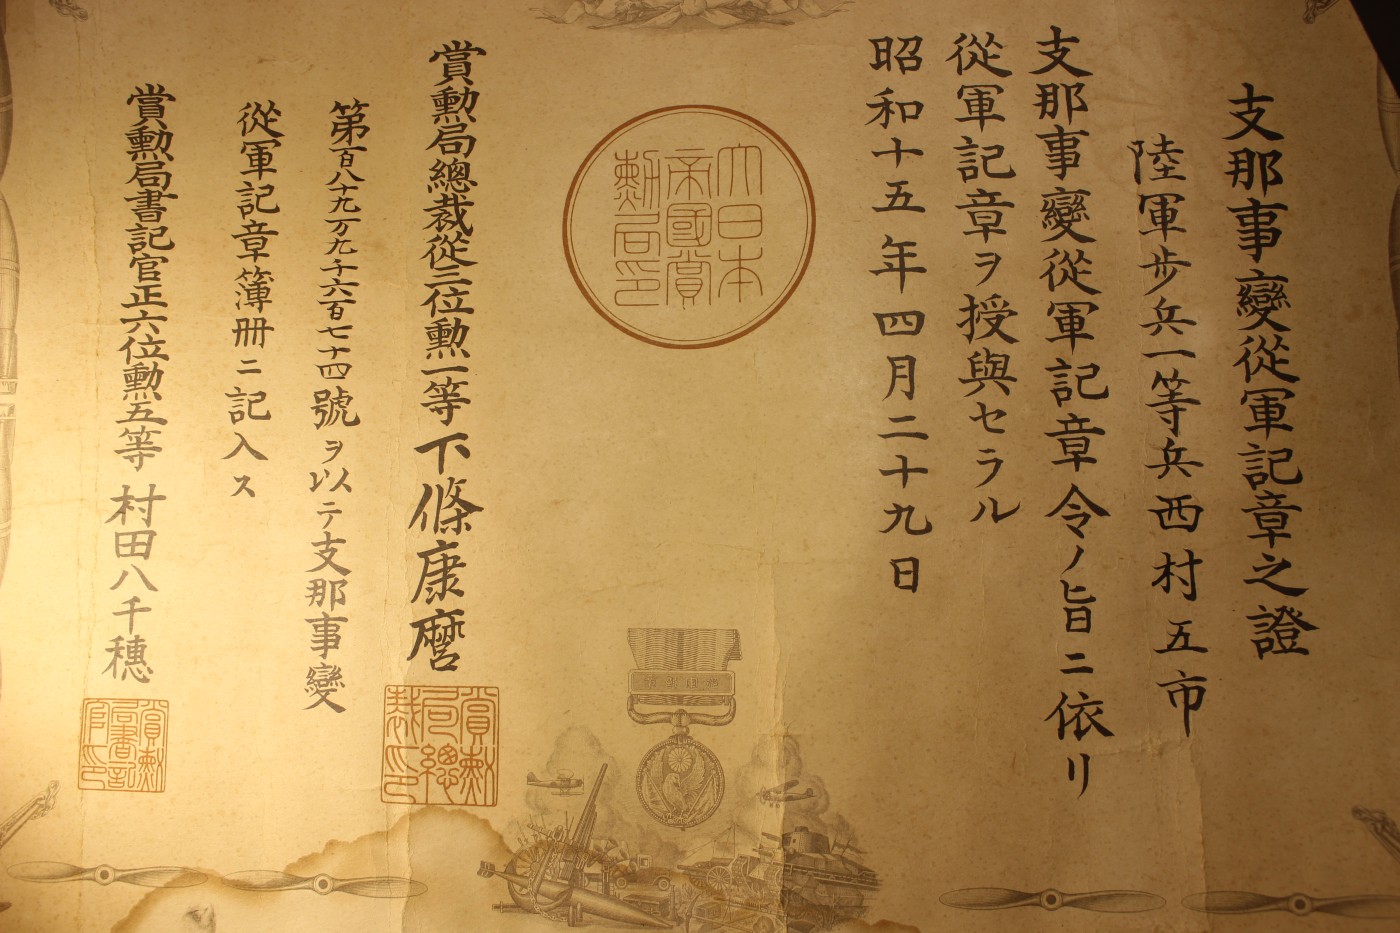 支那事變從軍記章之證
陸軍步兵一等兵西村五市
支那事變從軍記章令ノ旨ニ依リ
從軍記章ヲ授與セラル
昭和十五年四月二十九日
大日本
帝國賞
勳局印
賞勳局總裁從三位勳一等下條康麿
賞勳
局總
裁印
第百八十九万九千六百七十四號ヲ以テ支那事變
從軍記章簿册ニ記入ス
賞勳局書記官正六位勳五等村田八千穗
賞勳
局書記
官印